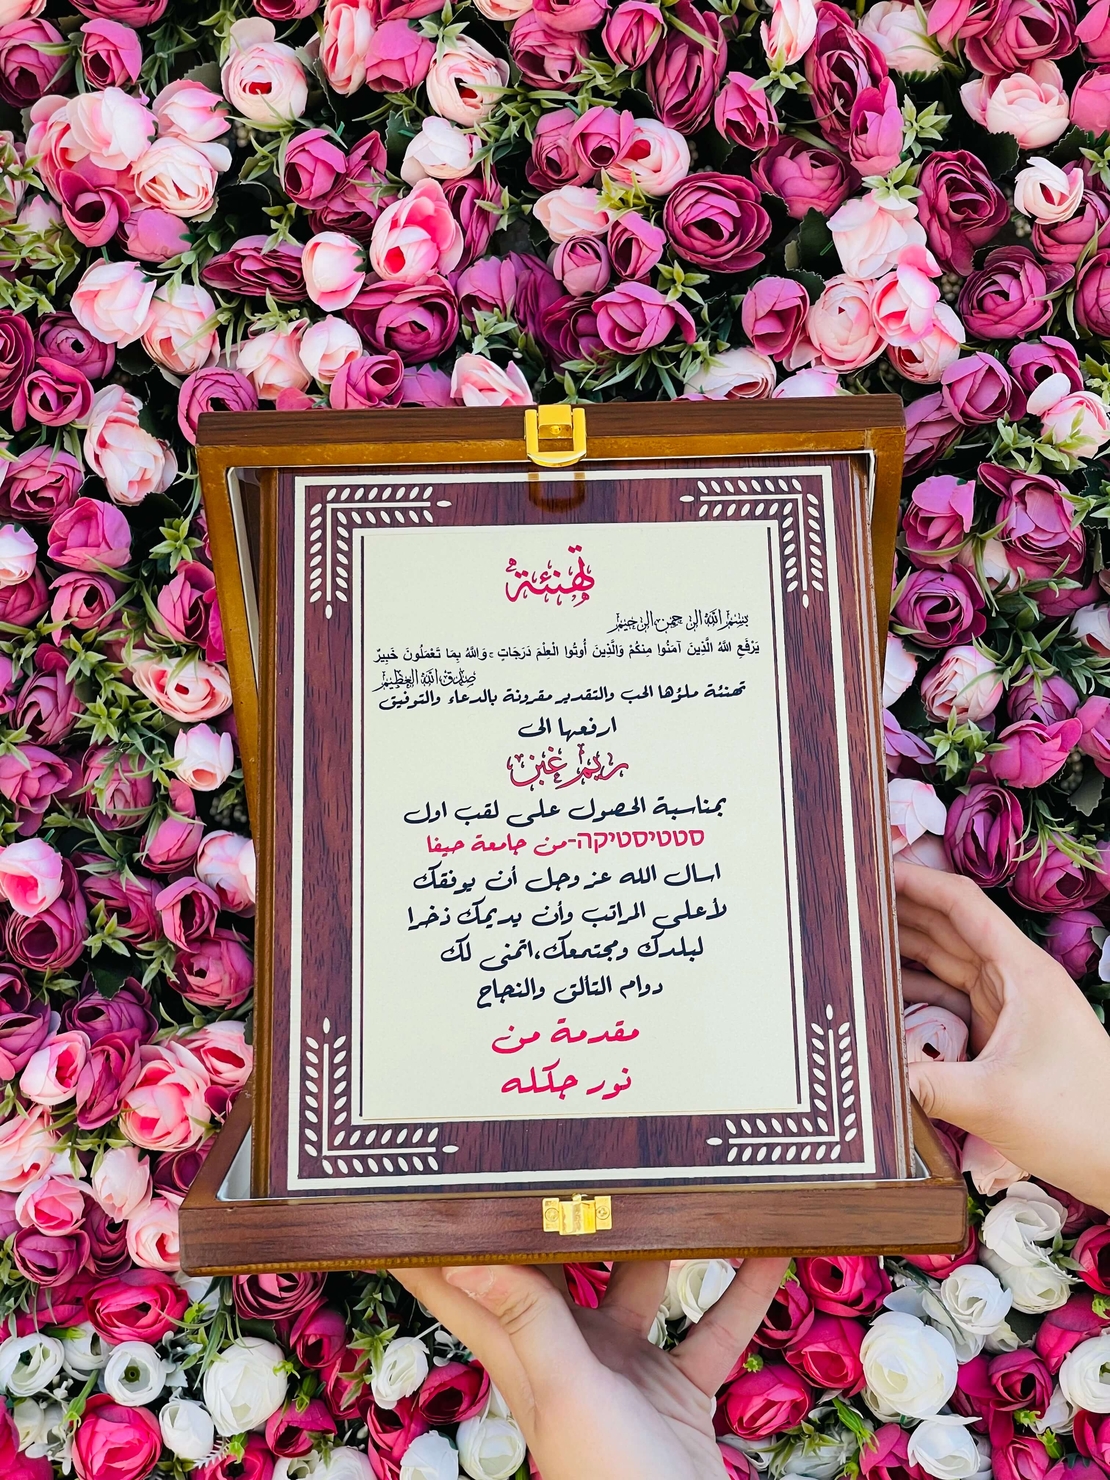 تهنئة
بسم الله الرحمن الرحيم
يَرْفَعِ اللَّهُ الَّذِينَ آمَنُوا مِنكُمْ وَالَّذِينَ أُوتُوا الْعِلْمَ دَرَجَاتٍ ۚ وَاللَّهُ بِمَا تَعْمَلُونَ خَبِيرٌ
صدق الله العظيم
تهنئة ملؤها الحب والتقدير مقرونة بالدعاء والتوفيق
ارفعها الى
ريم غنز
بمناسبة الحصول على لقب اول
סטטיסטיקה-من جامعة حيفا
اسال الله عز وجل أن يوفقك
لأعلى المراتب وأن يديمك ذخرا
لبلدك ومجتمعك،اتمنى لك
دوام التألق والنجاح
مقدمة من
نور جكله